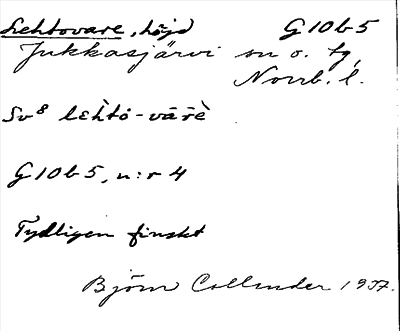 Lehtovare, höjd G10b5
Jukkasjärvi sn o. tg,
Norrb. l.
Sv8 lɛ̀htó-vārè
G10b5, n:r 4
Tydligen finskt
Björn Collinder 1937.